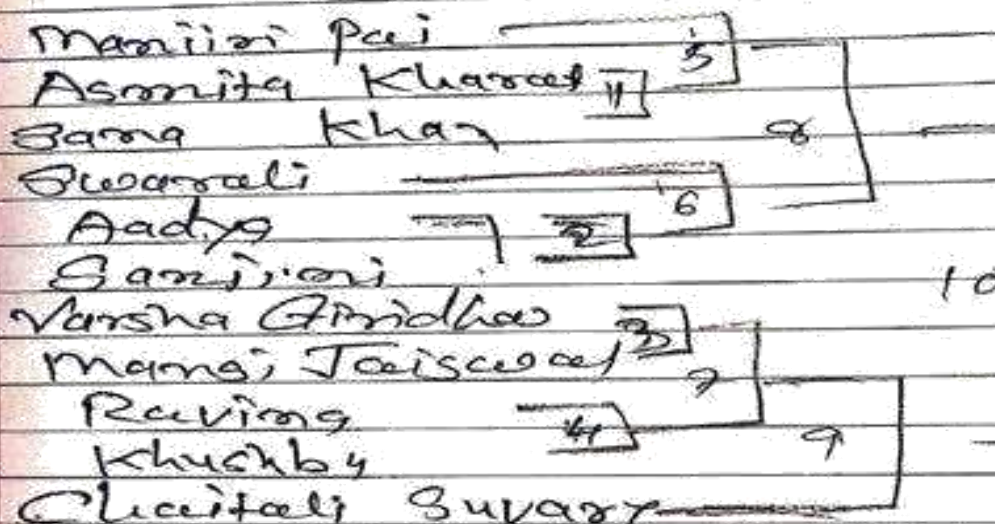 Maniiri Pai 5
Asmita Kharat 1
Sana Khan 8
Swarali
Aadya 2 6
Sanjiri 10
Varsha Giridhar 3
Mansi Jaiswal 7
Ravina 4
Khushbu 9
Chaitali Suvary